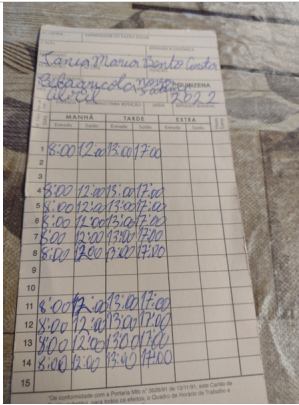 Tânia Maria Bento Costa
QUINZENA
2022
MANHÃ TARDE EXTRA
Entrada Saída Entrada Saída Entrada Saída
1 8:00 12:00 13:00 17:00
2
3
4 8:00 12:00 13:00 17:00
5 8:00 12:00 13:00 17:00
6 8:00 12:00 13:00 17:00
7 8:00 12:00 13:00 17:00
8 8:00 12:00 13:00 17:00
9
10
11 8:00 12:00 13:00 17:00
12 8:00 12:00 13:00 17:00
13 8:00 12:00 13:00 17:00
14 8:00 12:00 13:00 17:00
15
"De conformidade com a Portaria MTb nº 3626/91 de 13/11/91, este Cartão de
para todos os efeitos, o Quadro de Horário de Trabalho e